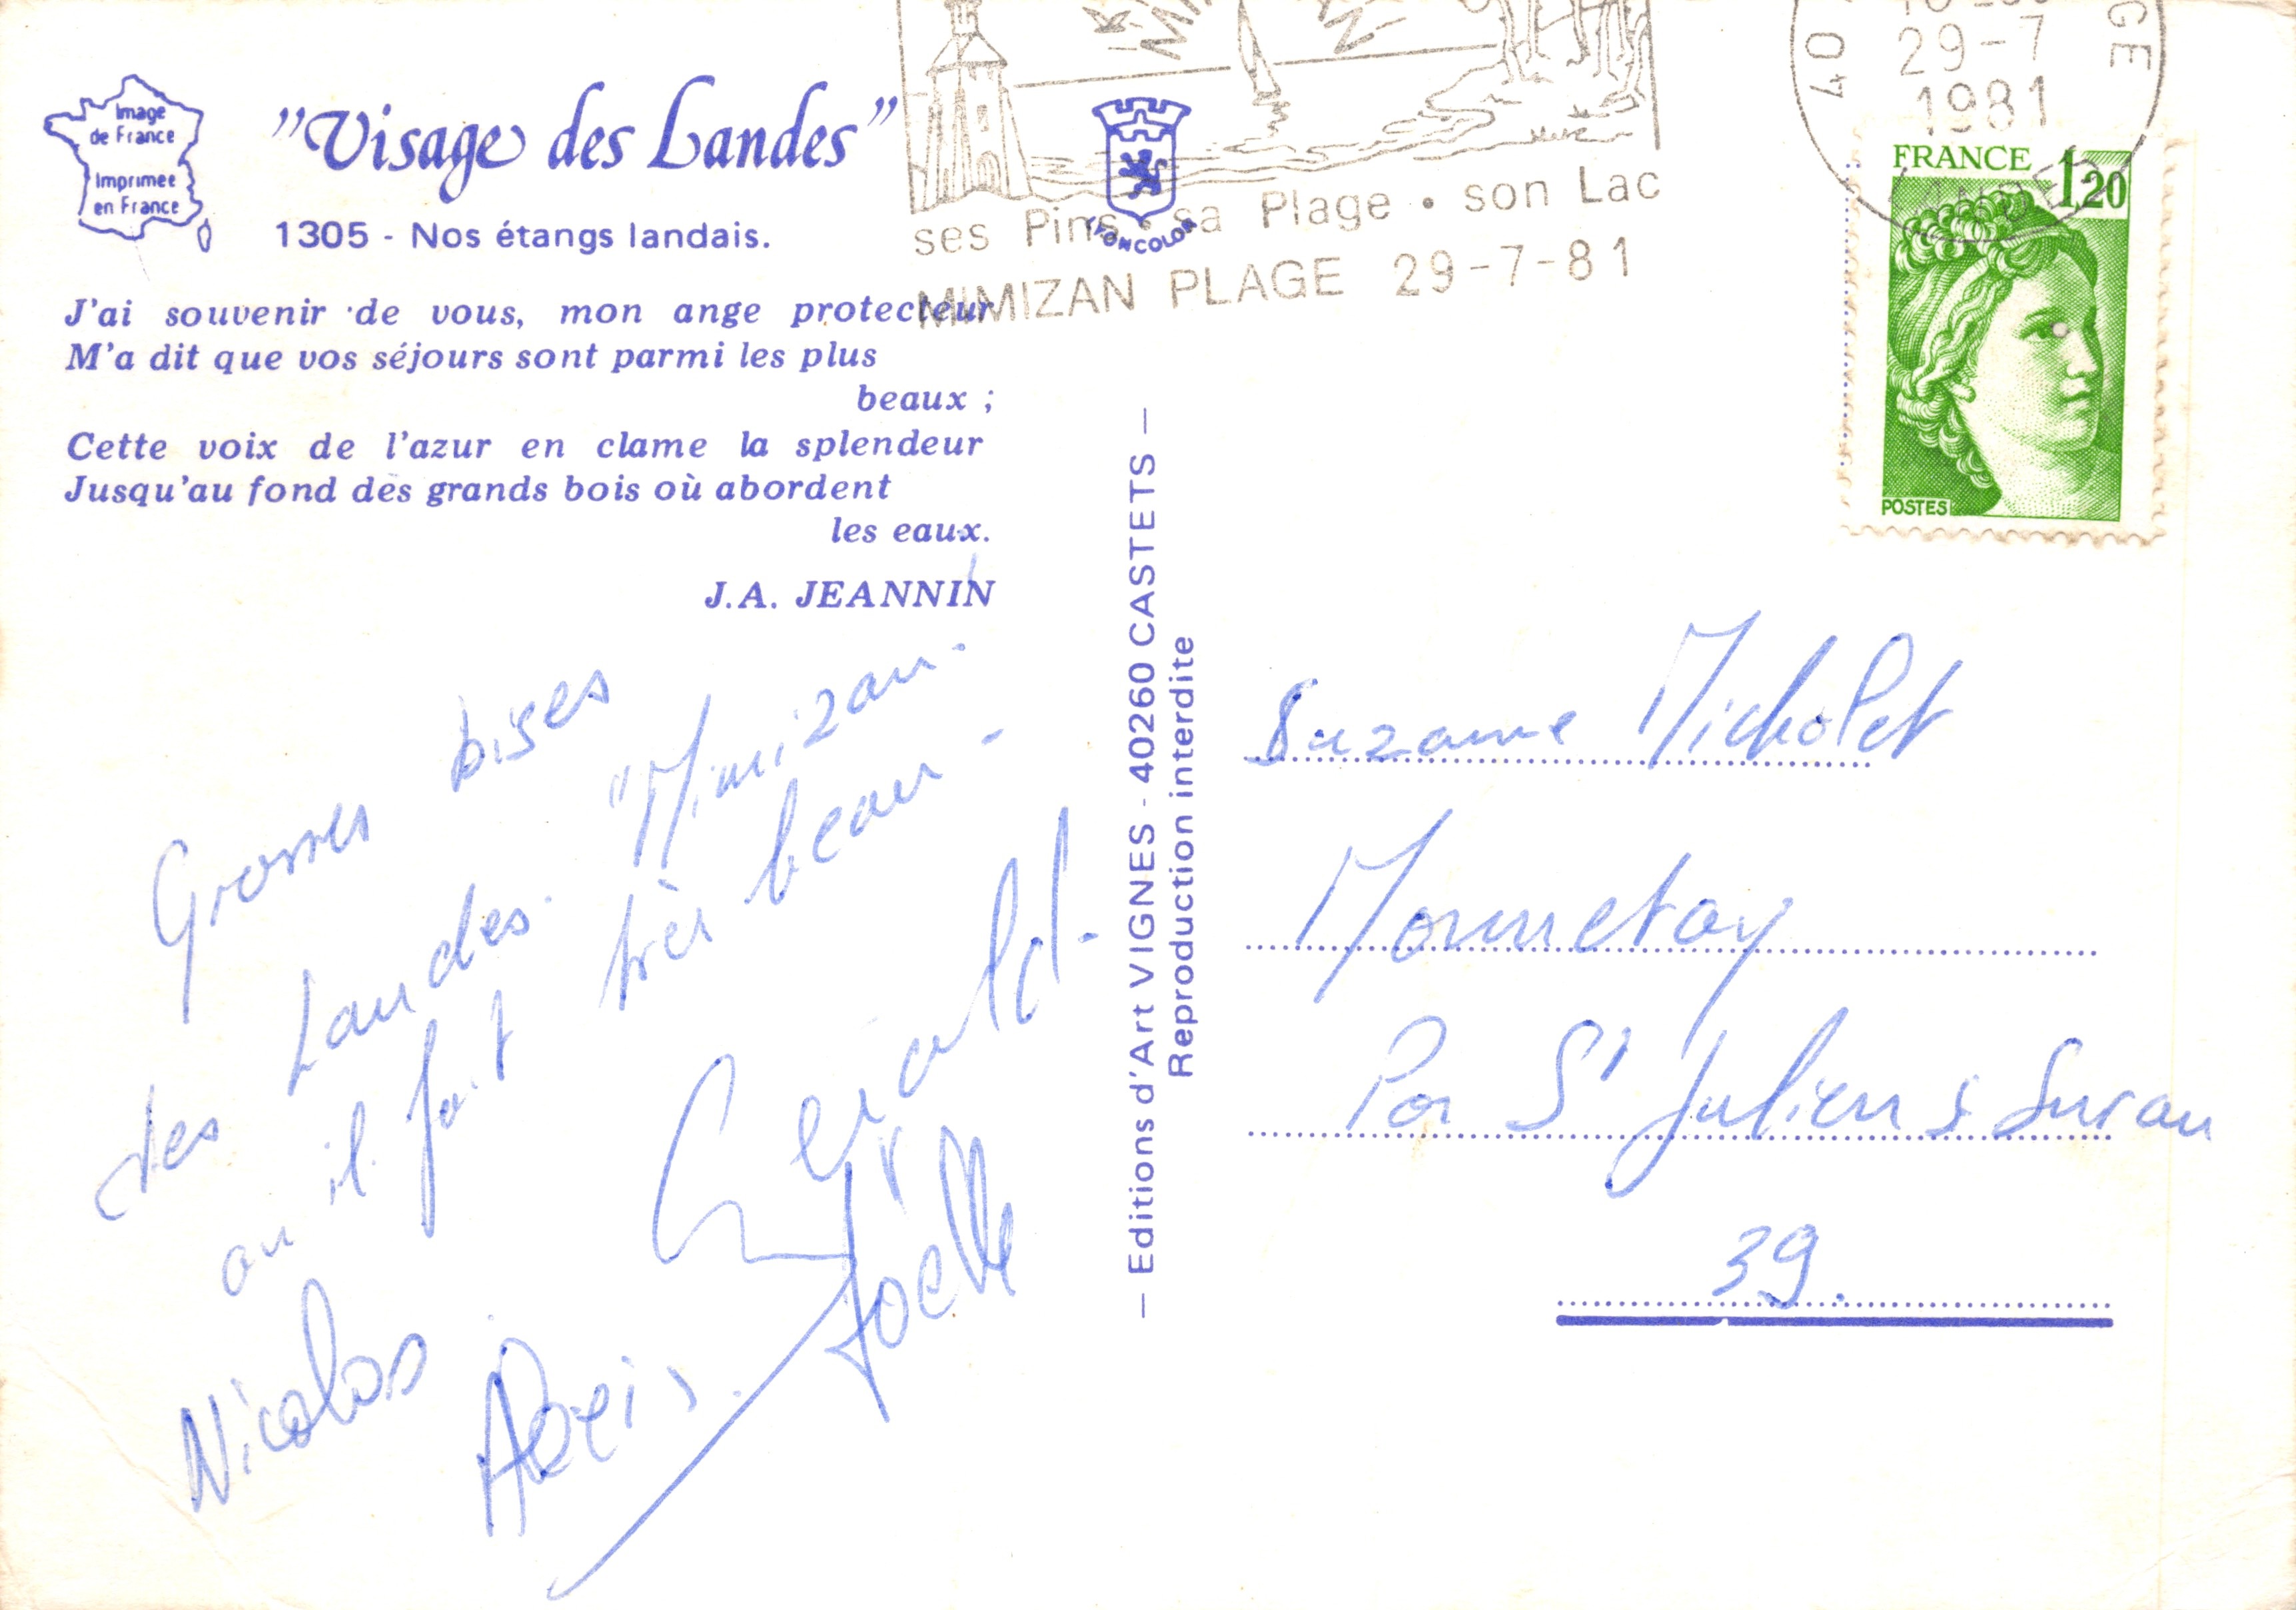 Image
de France
Imprimee
en France
"Visage des Landes"
1305 - Nos étangs landais.
J'ai souvenir de vous, mon ange protecteur
M'a dit que vos séjours sont parmi les plus
beaux ;
Cette voix de l'azur en clame la splendeur
Jusqu'au fond des grands bois où abordent
les eaux.
J.A. JEANNIN
Grosses bises
des Landes. "Mimizan.
ou il fait très beau.
Gerald.
Joelle
Nicolas
Alexis.
ses Pins • sa Plage • son Lac
MIMIZAN PLAGE 29-7-81
29-7
1981
FRANCE 1,20
POSTES
— Editions d'Art VIGNES - 40260 CASTETS —
Reproduction interdite
Suzanne Micholet
Monnetay
Par St Julien s Suran
39.